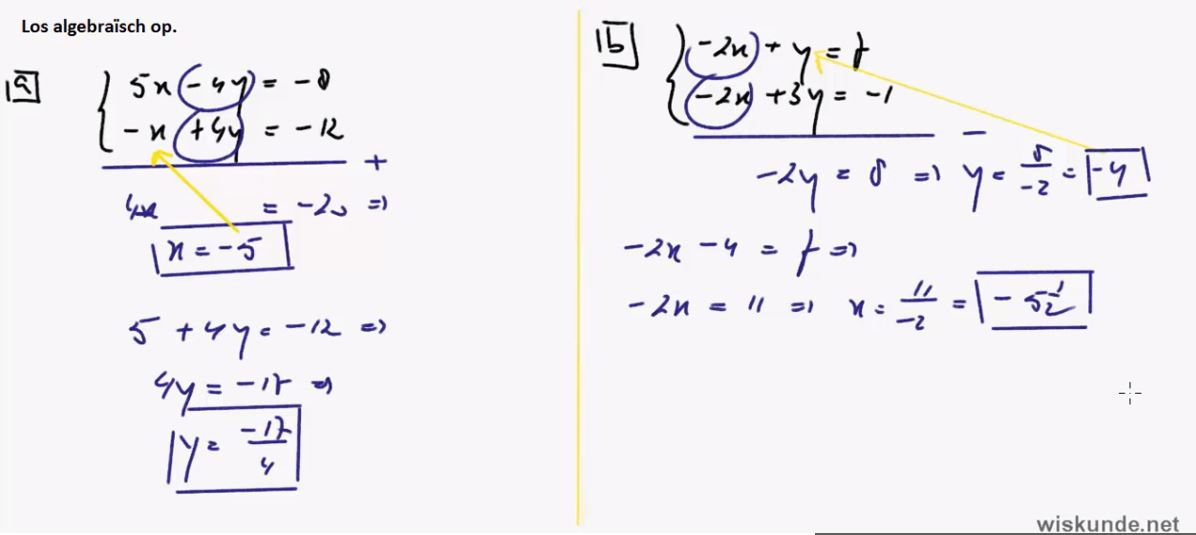 Los algebraïsch op.
1a
5x - 4y = -8
-x + 4y = -12
+
4x = -20 ⇒
x = -5
5 + 4y = -12 ⇒
4y = -17 ⇒
y = -17/4
1b
-2x + y = 7
-2x + 3y = -1
-
-2y = 8 ⇒ y = 8/-2 = -4
-2x - 4 = 7 ⇒
-2x = 11 ⇒ x = 11/-2 = -5 1/2
wiskunde.net